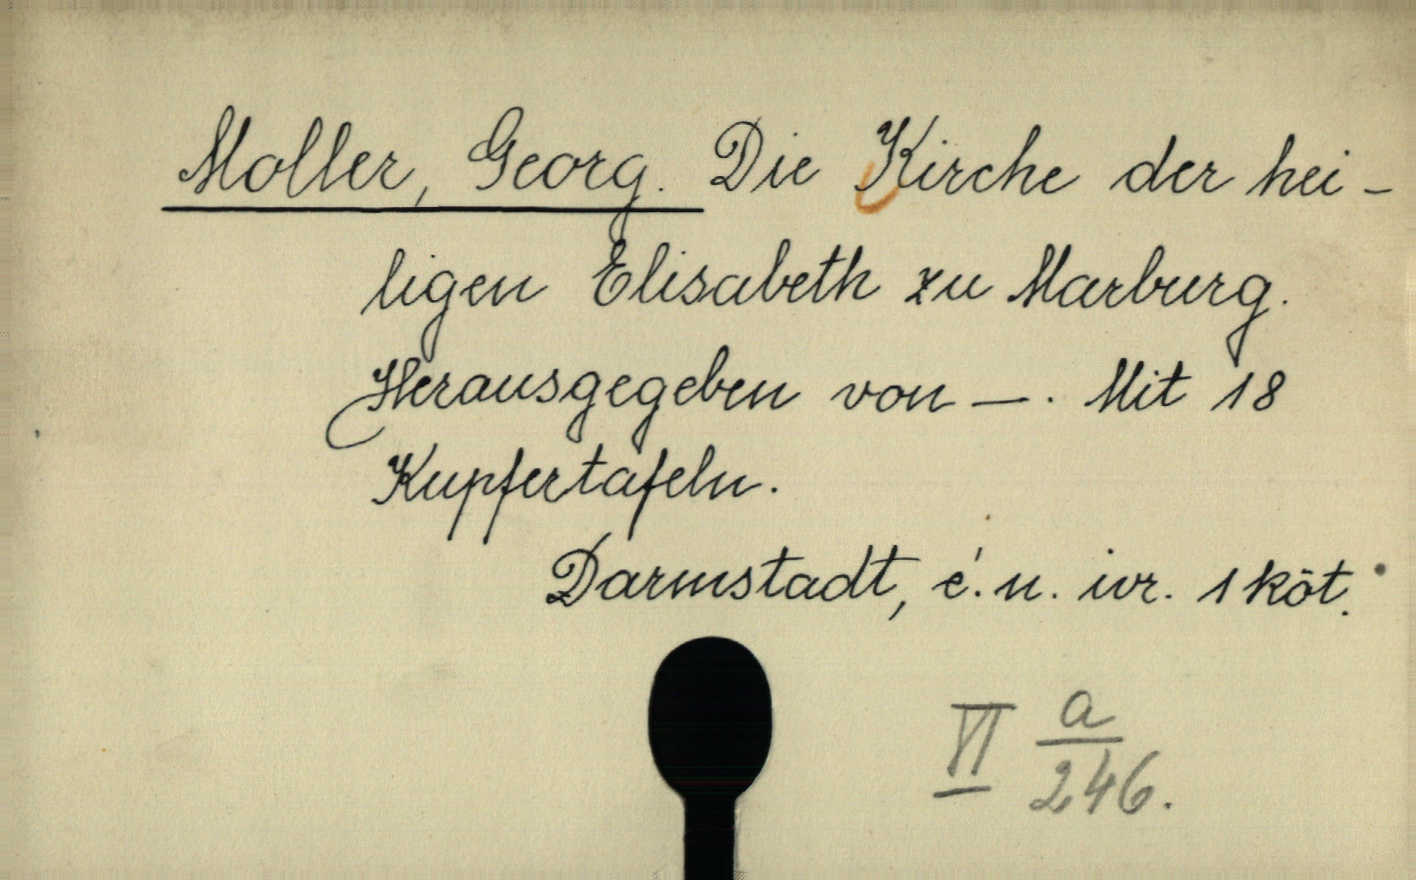 Moller, Georg. Die Kirche der hei-
ligen Elisabeth zu Marburg.
Herausgegeben von —. Mit 18
Kupfertafeln.
Darmstadt, é. n. ivr. 1 köt.
VI a/246.